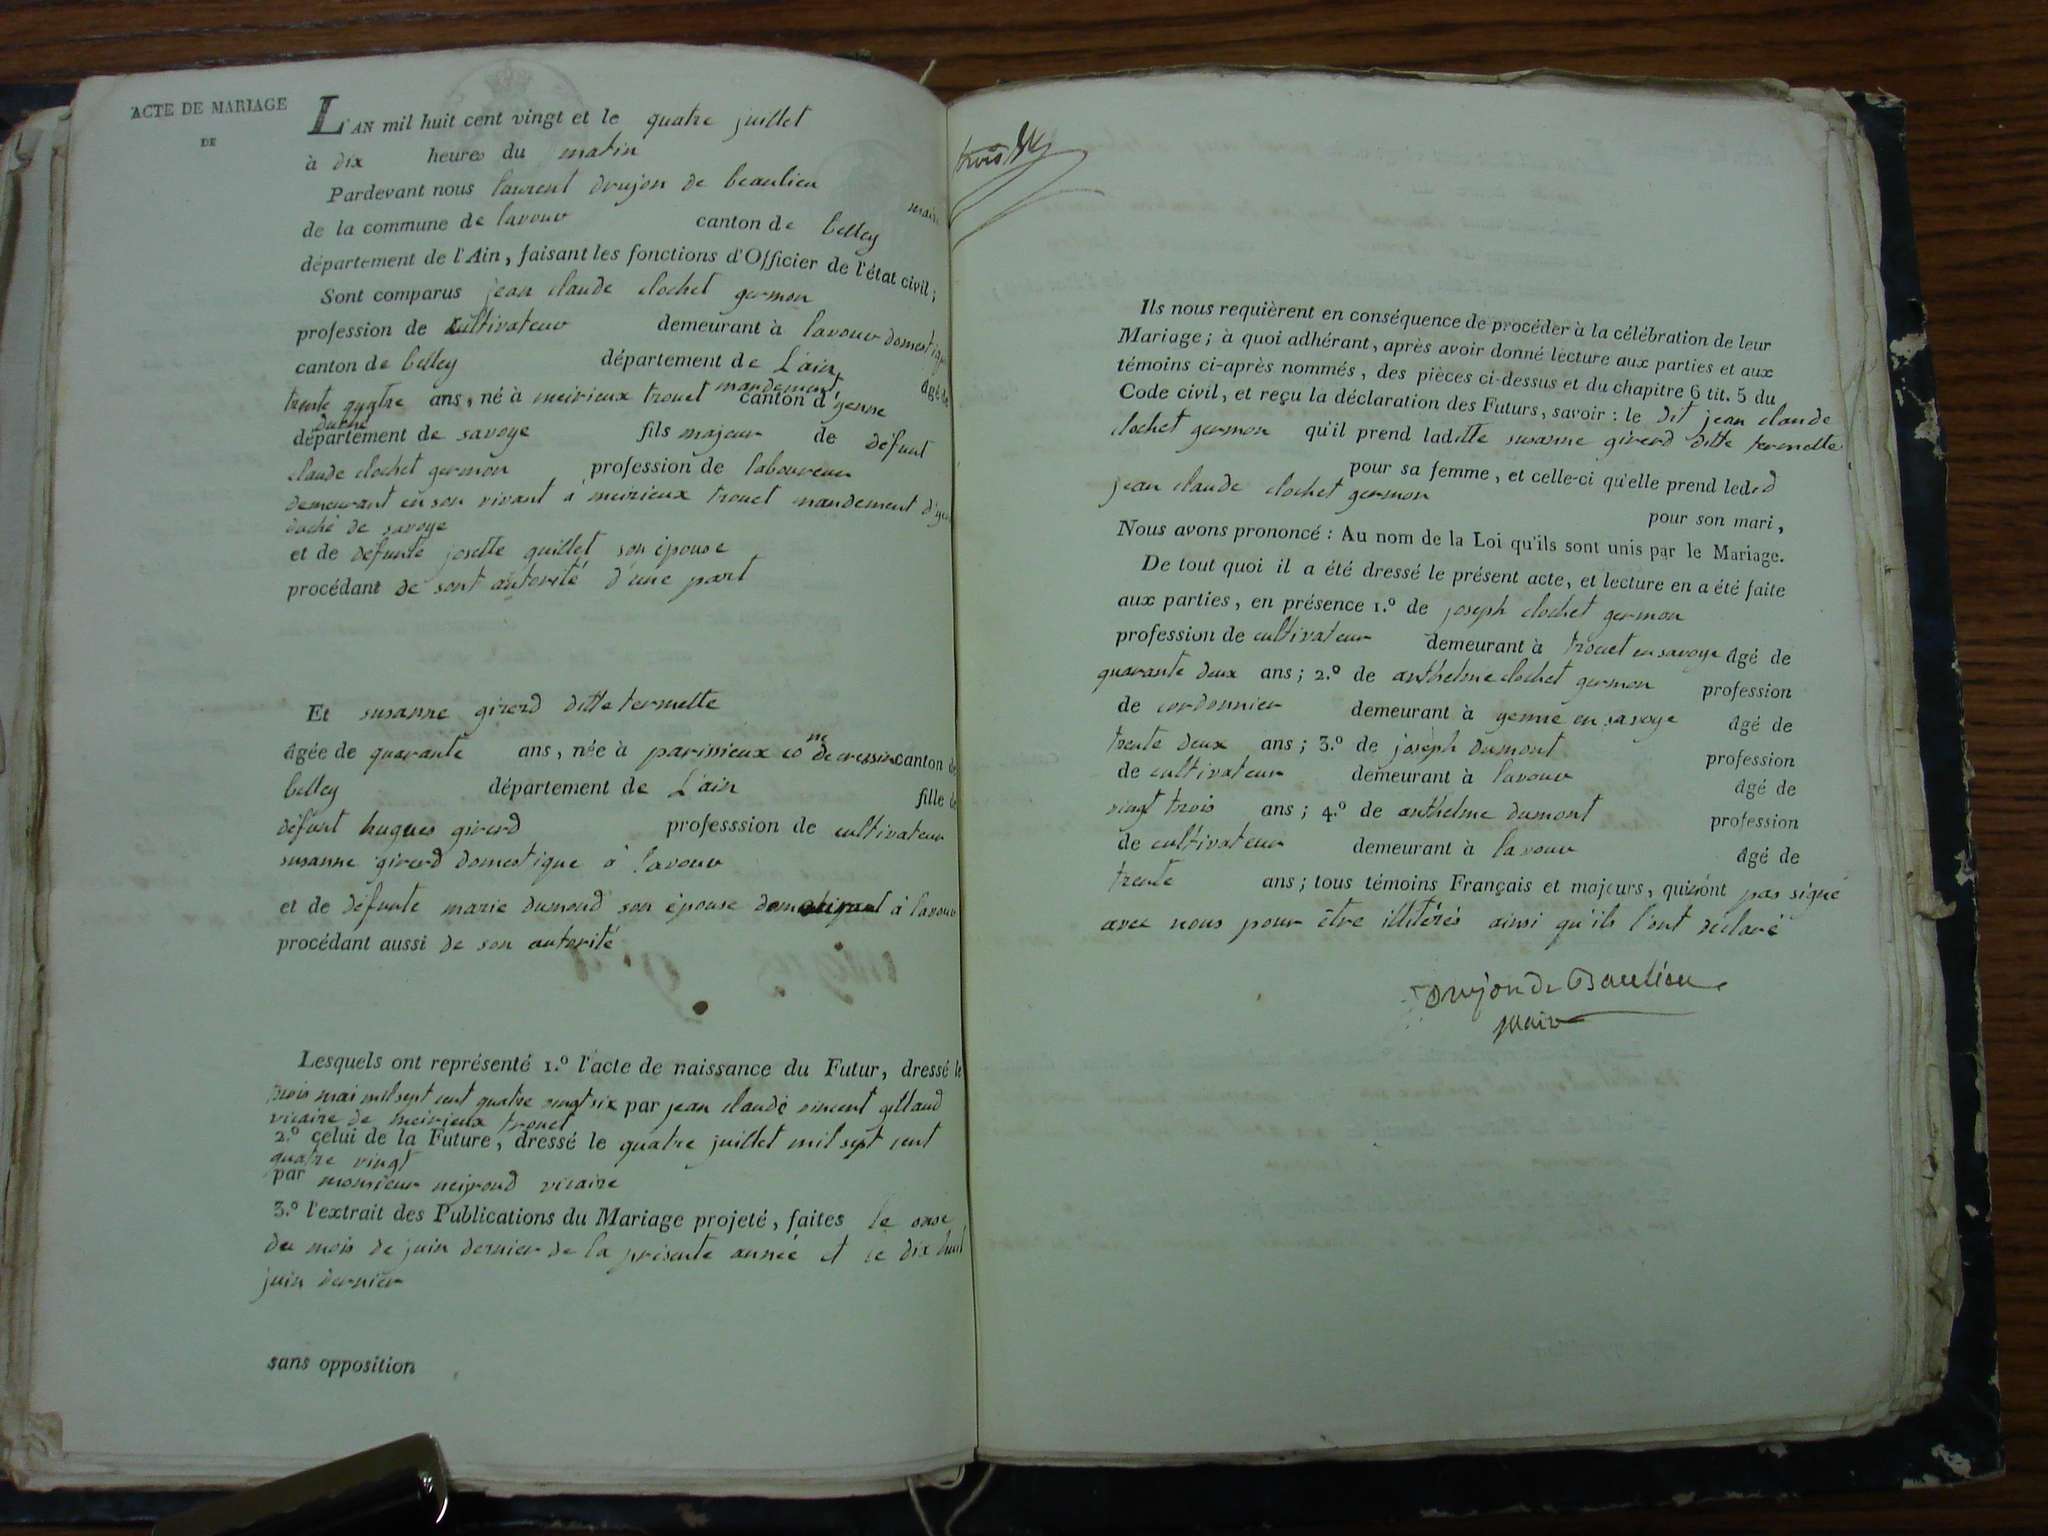 ACTE DE MARIAGE
DE
L'AN mil huit cent vingt et le quatre juillet
à dix heures du matin
Pardevant nous laurent drujon de beaulieu maire
de la commune de lavour canton de belley
département de l'Ain, faisant les fonctions d'Officier de l'état civil;
Sont comparus jean claude clochet germon
profession de cultivateur demeurant à lavour domestique
canton de belley département de L'ain âgé de
trente quatre ans, né à meirieux trouet mandement canton d'yenne
duché
département de savoye fils majeur de défunt
claude clochet germon profession de laboureur
demeurant en son vivant à meirieux trouet mandement d'yen
duché de savoye
et de défunte josette quillet son épouse
procédant de sont autorité d'une part
Et susanne girerd ditte termette
âgée de quarante ans, née à parissieux co ne de cressin canton de
belley département de L'ain fille de
défunt hugues girerd professsion de cultivateur
susanne girerd domestique à lavour
et de défunte marie dumond son épouse à lavour
procédant aussi de son autorité
Lesquels ont représenté 1.º l'acte de naissance du Futur, dressé le
trois mai mil sept cent quatre vingt six par jean claude vincent gilland
vicaire de meirieux trouet
2.º celui de la Future, dressé le quatre juillet mil sept cent
quatre vingt
par monsieur neyroud vicaire
3.º l'extrait des Publications du Mariage projeté, faites le onse
du mois de juin dernier de la présente année et le dix huit
juin dernier
sans opposition
trois
Ils nous requièrent en conséquence de procéder à la célébration de leur
Mariage; à quoi adhérant, après avoir donné lecture aux parties et aux
témoins ci-après nommés, des pièces ci-dessus et du chapitre 6 tit. 5 du
Code civil, et reçu la déclaration des Futurs, savoir: le dit jean claude
clochet germon qu'il prend laditte susanne girerd ditte termette
pour sa femme, et celle-ci qu'elle prend ledid
jean claude clochet germon pour son mari,
Nous avons prononcé: Au nom de la Loi qu'ils sont unis par le Mariage.
De tout quoi il a été dressé le présent acte, et lecture en a été faite
aux parties, en présence 1.º de joseph clochet germon
profession de cultivateur demeurant à trouet en savoye âgé de
quarante deux ans; 2.º de anthelme clochet germon profession
de cordonnier demeurant à yenne en savoye âgé de
trente deux ans; 3.º de joseph dumont profession
de cultivateur demeurant à lavour âgé de
vingt trois ans; 4.º de anthelme dumont profession
de cultivateur demeurant à lavour âgé de
trente ans; tous témoins Français et majeurs, qui n'ont pas signé
avec nous pour être illitérés ainsi qu'ils l'ont déclaré
Drujon de Baulieu
maire